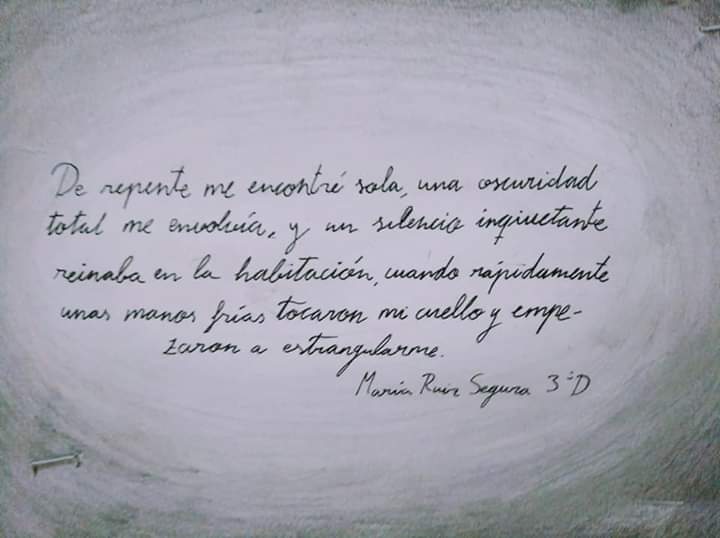 De repente me encontré sola, una oscuridad
total me envolvía, y un silencio inquietante
reinaba en la habitación, cuando rápidamente
unas manos frías tocaron mi cuello y empe-
zaron a estrangularme.
María Ruiz Segura 3ºD